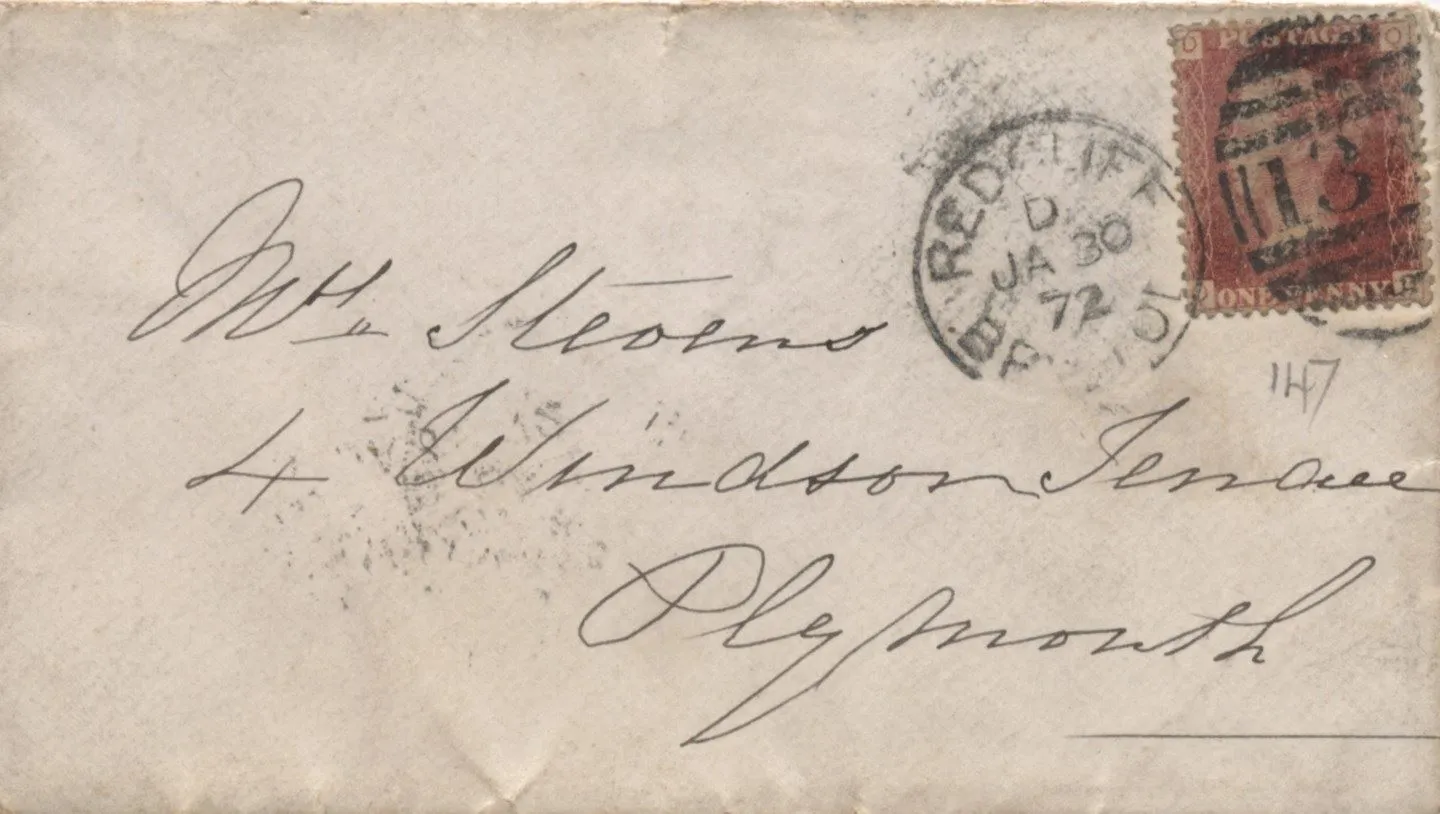 POSTAGE
O O
13
ONE PENNY
REDCLIFF
D
JA 30
72
BRISTOL
147
Mrs Stevens
4 Windsor Terrace
Plymouth